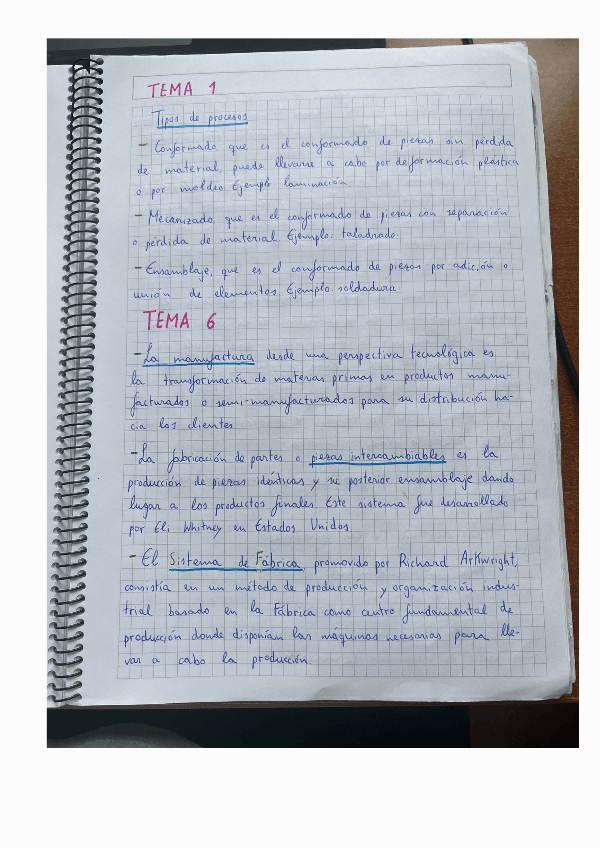 TEMA 1
Tipos de procesos
- Conformado, que es el conformado de piezas sin pérdida
de material, puede llevarse a cabo por deformación plástica
o por moldeo. Ejemplo: laminación
- Mecanizado, que es el conformado de piezas con separación
o pérdida de material. Ejemplo: taladrado.
- Ensamblaje, que es el conformado de piezas por adición o
unión de elementos. Ejemplo: soldadura
TEMA 6
- La manufactura desde una perspectiva tecnológica es
la transformación de materias primas en productos manu-
facturados o semi-manufacturados para su distribución ha-
cia los clientes
- La fabricación de partes o piezas intercambiables es la
producción de piezas idénticas y su posterior ensamblaje dando
lugar a los productos finales. Este sistema fue desarrollado
por Eli Whitney en Estados Unidos.
- El Sistema de Fábrica, promovido por Richard Arkwright,
consistía en un método de producción y organización indus-
trial basado en la Fábrica como centro fundamental de
producción donde disponían las máquinas necesarias para lle-
var a cabo la producción.